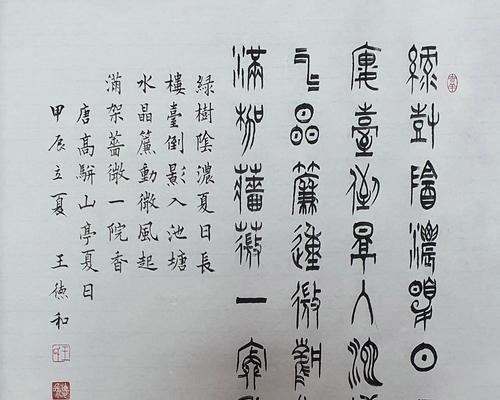 綠樹陰濃夏日
樓臺倒影入池
水晶簾動微風
滿架薔薇一院
綠樹陰濃夏日長
樓臺倒影入池塘
水晶簾動微風起
滿架薔薇一院香
唐高駢山亭夏日
甲辰立夏 王德和